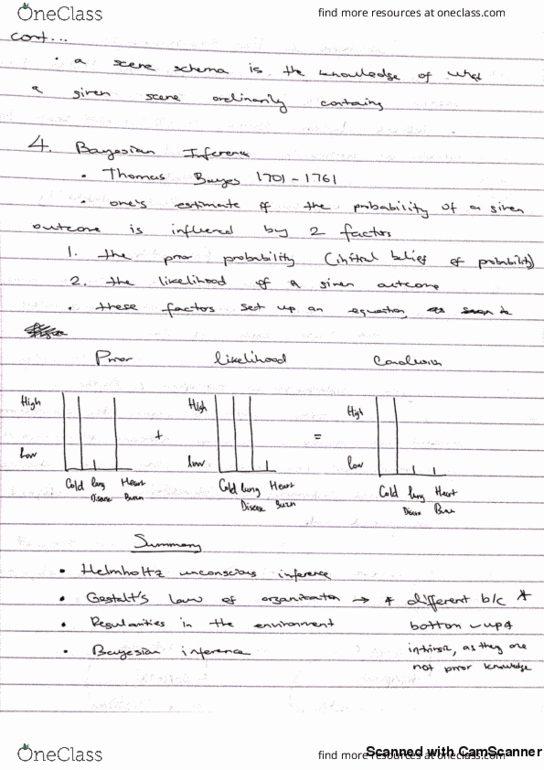 OneClass
find more resources at oneclass.com
cont...
• a scene schema is the knowledge of what
a given scene ordinarily contains
4. Bayesian Inference
• Thomas Bayes 1701 - 1761
• one's estimate of the probability of a given
outcome is influenced by 2 factors
1. the prior probability (initial belief of probability)
2. the likelihood of a given outcome
• these factors set up an equation,
Prior Likelihood
High High High
+ =
Low Low Low
Cold Lung Heart Cold Lung Heart Cold Lung Heart
Disease Burn Disease Burn Disease Burn
Summary
• Helmholtz unconscious inference
• Gestalt's laws of organization → * different b/c *
• Regularities in the environment bottom-up &
• Bayesian inference intrinsic, as they are
not prior knowledge
Scanned with CamScanner
OneClass
find more resources at oneclass.com